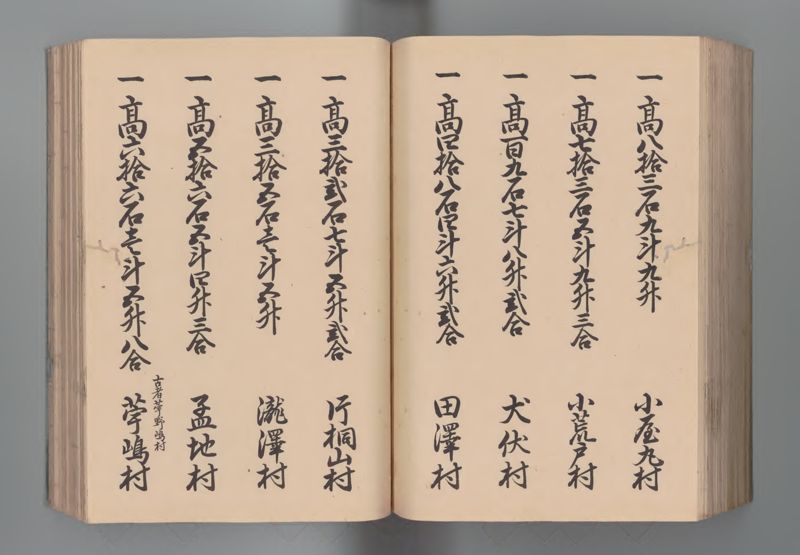 一高八拾三石九斗九升 小屋丸村
一高七拾三石五斗九升三合 小荒戸村
一高百九石七斗八升弐合 犬伏村
一高四拾八石四斗六升弐合 田澤村
一高三拾弐石七斗五升弐合 片桐山村
一高三拾五石壱斗五升 瀧澤村
一高五拾六石五斗四升三合 孟地村
古者苧野嶋村
一高六拾六石壱斗五升八合 苧嶋村